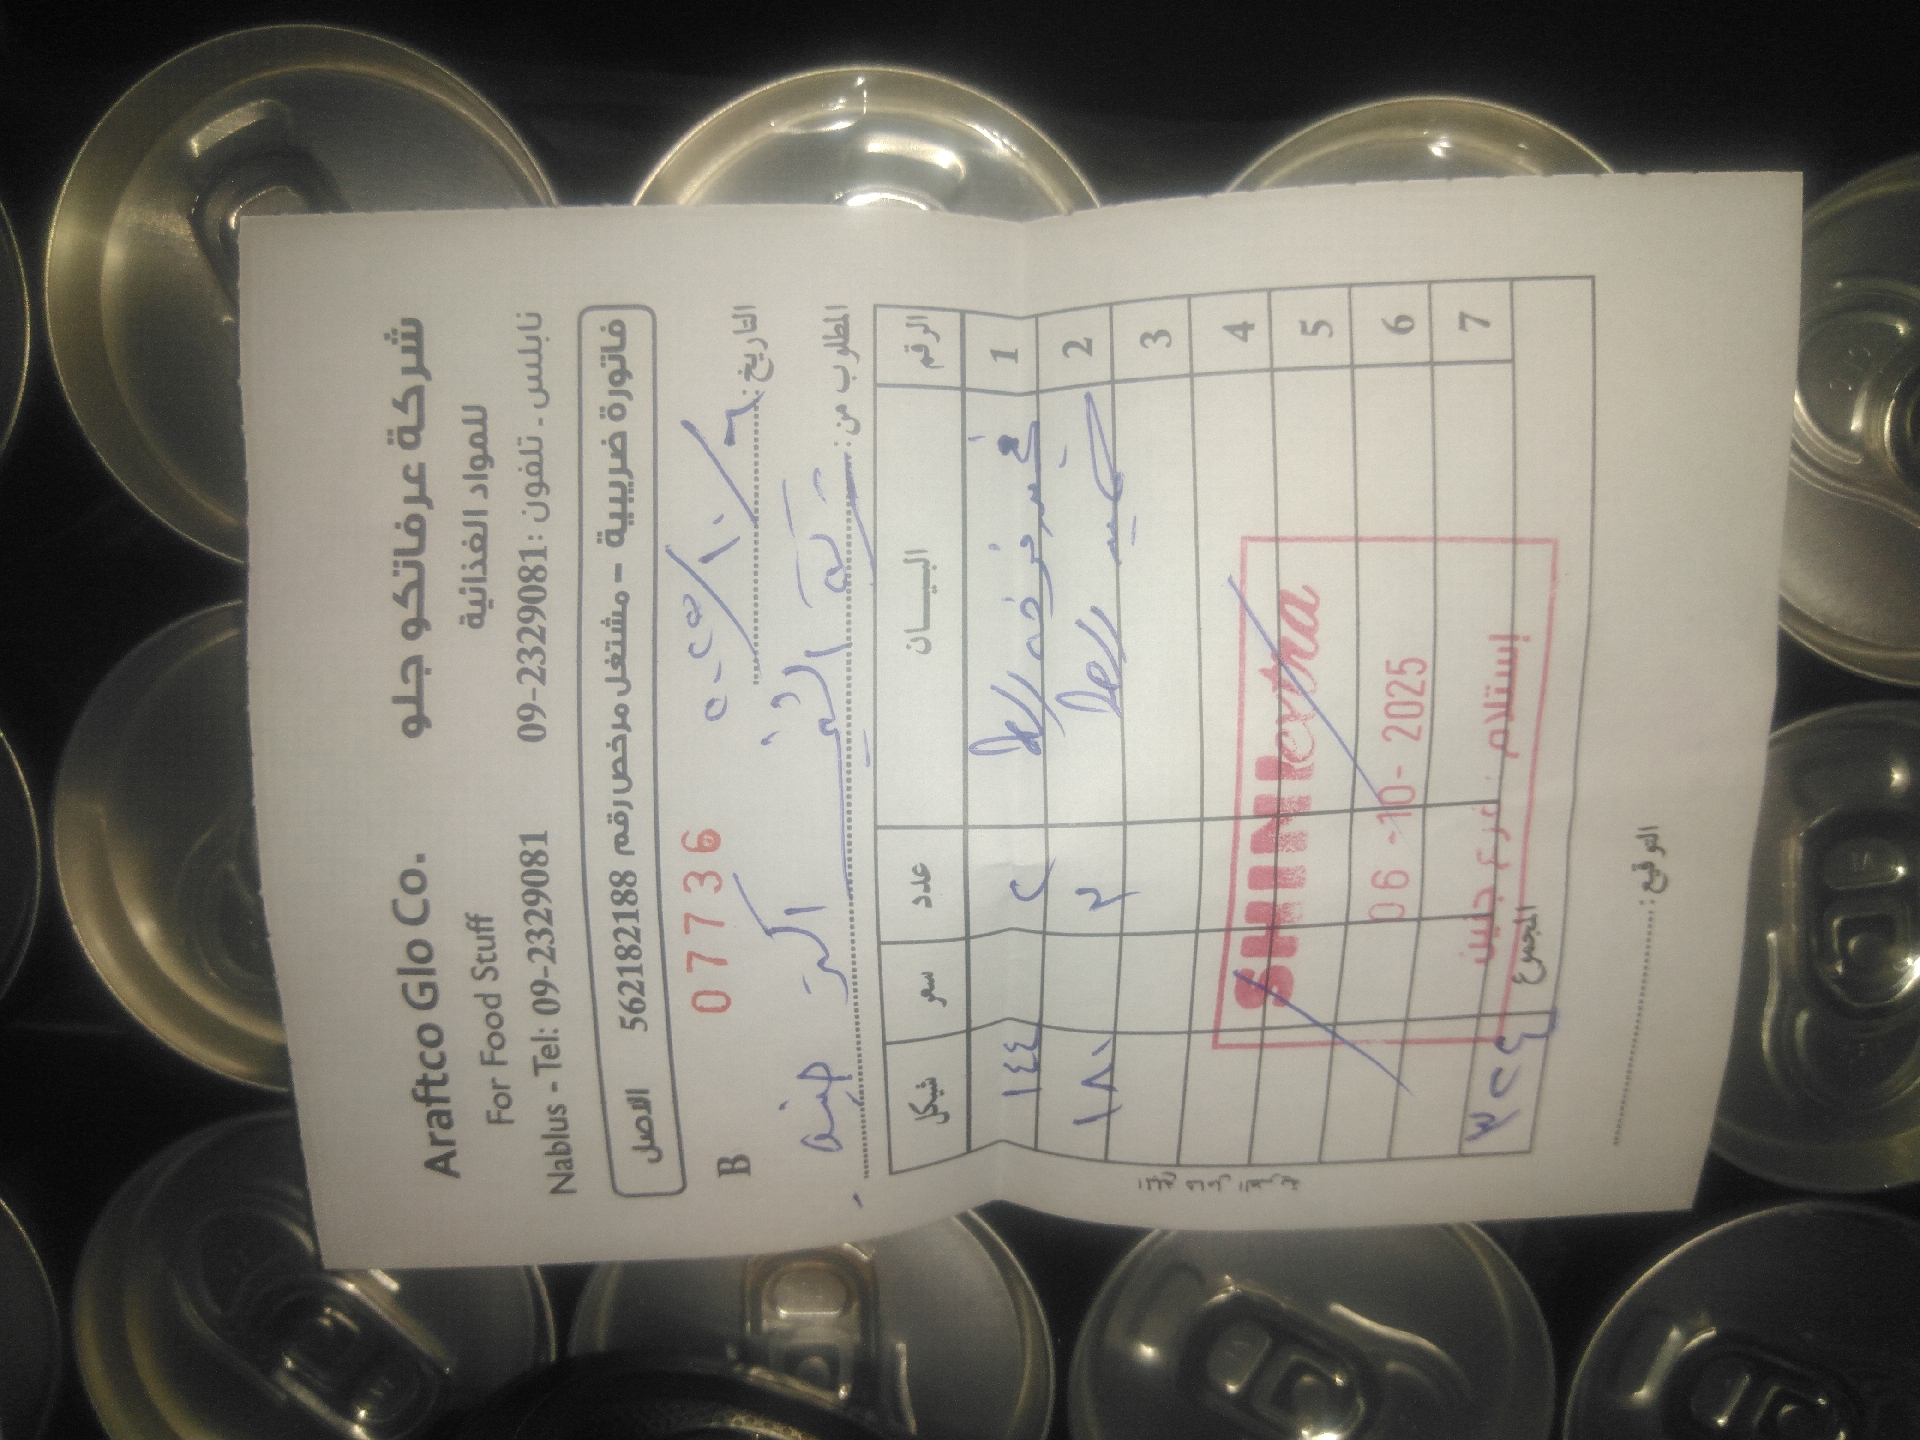 Araftco Glo Co. شركة عرفاتكو جلو
For Food Stuff للمواد الغذائية
Nablus - Tel: 09-2329081 نابلس - تلفون: 09-2329081
فاتورة ضريبية - مشتغل مرخص رقم 562182188 الاصل
B 07736 التاريخ: ٢٠٢٥/١٠/٦
المطلوب من: اكسترا
الرقم البيـــان عدد سعر شيكل
1 ٢ ١٤٤
2 ٣ ١٨٠
3
4
5
6
7
المجموع ٣٢٤
SHINI extra
06 -10- 2025
إستلام فرع جنين
التوقيع: